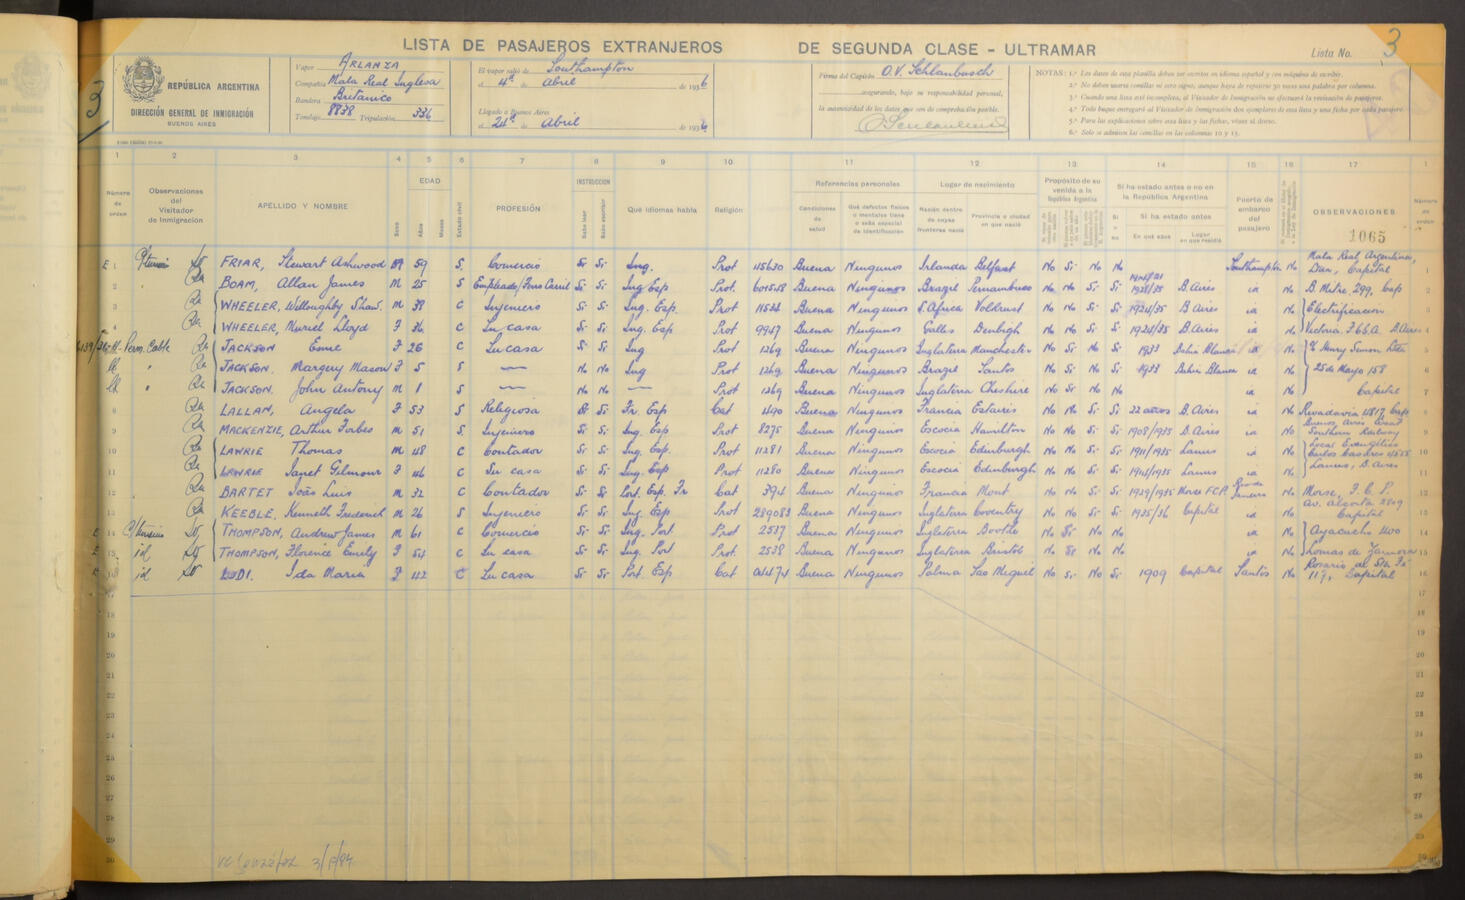 LISTA DE PASAJEROS EXTRANJEROS DE SEGUNDA CLASE - ULTRAMAR
Lista No. 3
3
REPÚBLICA ARGENTINA
DIRECCIÓN GENERAL DE INMIGRACIÓN
BUENOS AIRES
Vapor ARLANZA
Compañía Mala Real Inglesa
Bandera Britanico
Tonelaje 8838 Tripulación 336
El vapor salió de Southampton
el 4º de Abril de 1936
Llegado a Buenos Aires
el 24º de Abril de 1936
Firma del Capitán O.V. Schlanbusch
asegurando, bajo su responsabilidad personal,
la autenticidad de los datos que son de comprobación posible.
NOTAS: 1.ª Los datos de esta planilla deben ser escritos en idioma español y con máquina de escribir.
2.ª No deben usarse comillas ni otro signo, aunque haya de repetirse 30 veces una palabra por columna.
3.ª Cuando una lista esté incompleta, el Visitador de Inmigración no efectuará la revisación de pasajeros.
4.ª Todo buque entregará al Visitador de Inmigración dos ejemplares de esta lista y una ficha por cada pasajero.
5.ª Para las explicaciones sobre esta lista y las fichas, véase al dorso.
6.ª Solo se admiten las comillas en las columnas 10 y 15.
1 2 3 4 5 6 7 8 9 10 11 12 13 14 15 16 17 1
Número de orden
Observaciones del Visitador de Inmigración
APELLIDO Y NOMBRE
Sexo
EDAD
Años
Meses
Estado civil
PROFESIÓN
INSTRUCCION
Sabe leer
Sabe escribir
Qué idiomas habla
Religión
Referencias personales
Condiciones de salud
Qué defectos físicos o mentales tiene o seña especial de identificación
Lugar de nacimiento
Nación dentro de cuyas fronteras nació
Provincia o ciudad en que nació
Propósito de su venida a la República Argentina
Si ha estado antes o no en la República Argentina
Si o no
Si ha estado antes
En qué años
Lugar en que residió
Puerto de embarco del pasajero
OBSERVACIONES
1065
Número de orden
E 1 FRIAR, Stewart Ashwood M 59 S. Comercio Si Si Ing. Prot 115630 Buena Ningunos Irlanda Belfast No Si No No Southampton No Mala Real Argentina, Capital
2 Re BOAM, Allan James M 25 S Empleado/Ferro Carril Si Si Ing Esp Prot. 601548 Buena Ningunos Brazil Pernambuco No No Si Si 1928/35 B. Aires id No B. Mitre, 299, Cap
3 Re WHEELER, Willoughby Shaw. M 38 C Ingeniero Si Si Ing. Esp. Prot 11524 Buena Ningunos S. Africa Volkrust No No Si Si 1924/35 B Aires id No Electrificacion
4 Re WHEELER, Muriel Lloyd F 36 C Su casa Si Si Ing. Esp Prot 9947 Buena Ningunos Galles Denbigh No No Si Si 1924/35 B. Aires id No Victoria. F.C.C.A. B. Aires
Perm. Cable Re JACKSON Esme F 26 C Su casa Si Si Ing Prot 1269 Buena Ningunos Inglaterra Manchester No Si No Si 1933 Bahia Blanca id No Henry Simon Ltda
" Re JACKSON. Margery Mason F 5 S No No Ing Prot 1269 Buena Ningunos Brazil Santos No Si No Si 1933 Bahia Blanca id No 25 de Mayo 158
" Re JACKSON. John Antony M 1 S No No Prot 1269 Buena Ningunos Inglaterra Cheshire No Si No No id No Capital
8 Re LALLAN, Angela F 53 S Religiosa Si Si Fr. Esp Cat 490 Buena Ningunos Francia Estaires No No Si Si 22 años B. Aires id No Rivadavia 4817 Cap
9 Re MACKENZIE, Arthur Forbes M 51 S. Ingeniero Si Si Ing. Esp Prot 8275 Buena Ningunos Escocia Hamilton No No Si Si 1908/1935 B. Aires id No Buenos Aires Great Southern Railway
10 Re LAWRIE Thomas M 48 C Contador Si Si Ing. Esp. Prot 11281 Buena Ningunos Escocia Edinburgh No No Si Si 1911/1935 Lanus id No Local Evangelico Carlos Casares
11 Re LAWRIE Janet Gilmour F 46 C Su casa Si Si Ing. Esp Prot 11280 Buena Ningunos Escocia Edinburgh No No Si Si 1914/1935 Lanus id No Lanus, B. Aires
12 Re BARTET João Luis M 32 C Contador Si Si Port. Esp. Fr Cat 394 Buena Ningunos Francia Mont No No Si Si 1929/1935 Morse FCP. Rio de Janeiro No Morse, F.C.P.
13 Re KEEBLE, Kenneth Frederick M 26 S Ingeniero Si Si Ing. Esp Prot 289083 Buena Ningunos Inglaterra Coventry No No Si Si 1935/36 Capital id No Av. Alcorta 2809 Capital
E 14 THOMPSON, Andrew James M 61 C Comercio Si Si Ing. Port Prot 2537 Buena Ningunos Inglaterra Bootle No Si No No id No Ayacucho 1400
E 15 id. THOMPSON, Florence Emily F 54 C Su casa Si Si Ing. Port Prot 2538 Buena Ningunos Inglaterra Bristol No Si No No id No Lomas de Zamora
E 16 id LODI. Ida Maria F 42 C Su casa Si Si Port. Esp Cat Buena Ningunos Palma Sao Miguel No Si No Si 1909 Capital Santos No Rosario de Sta Fé 117, Capital
17
18
19
20
21
22
23
24
25
26
27
28
29
30